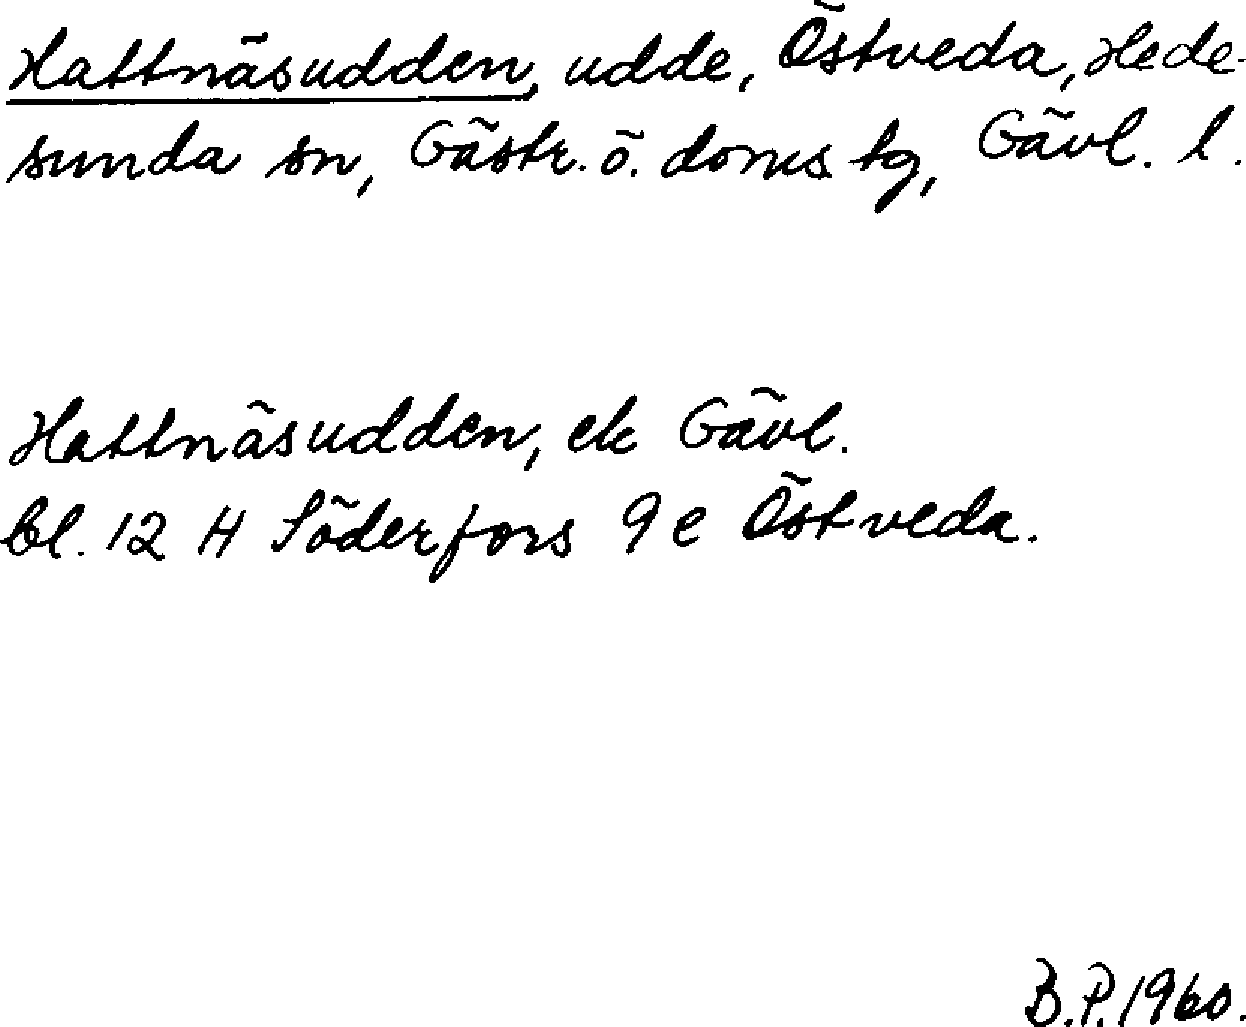 Hattnäsudden, udde, Östveda, Hede-
sunda sn, Gästr. ö. doms. tg, Gävl. l.
Hattnäsudden, ek Gävl.
bl. 12 H Söderfors 9 e Östveda.
B.P. 1960.